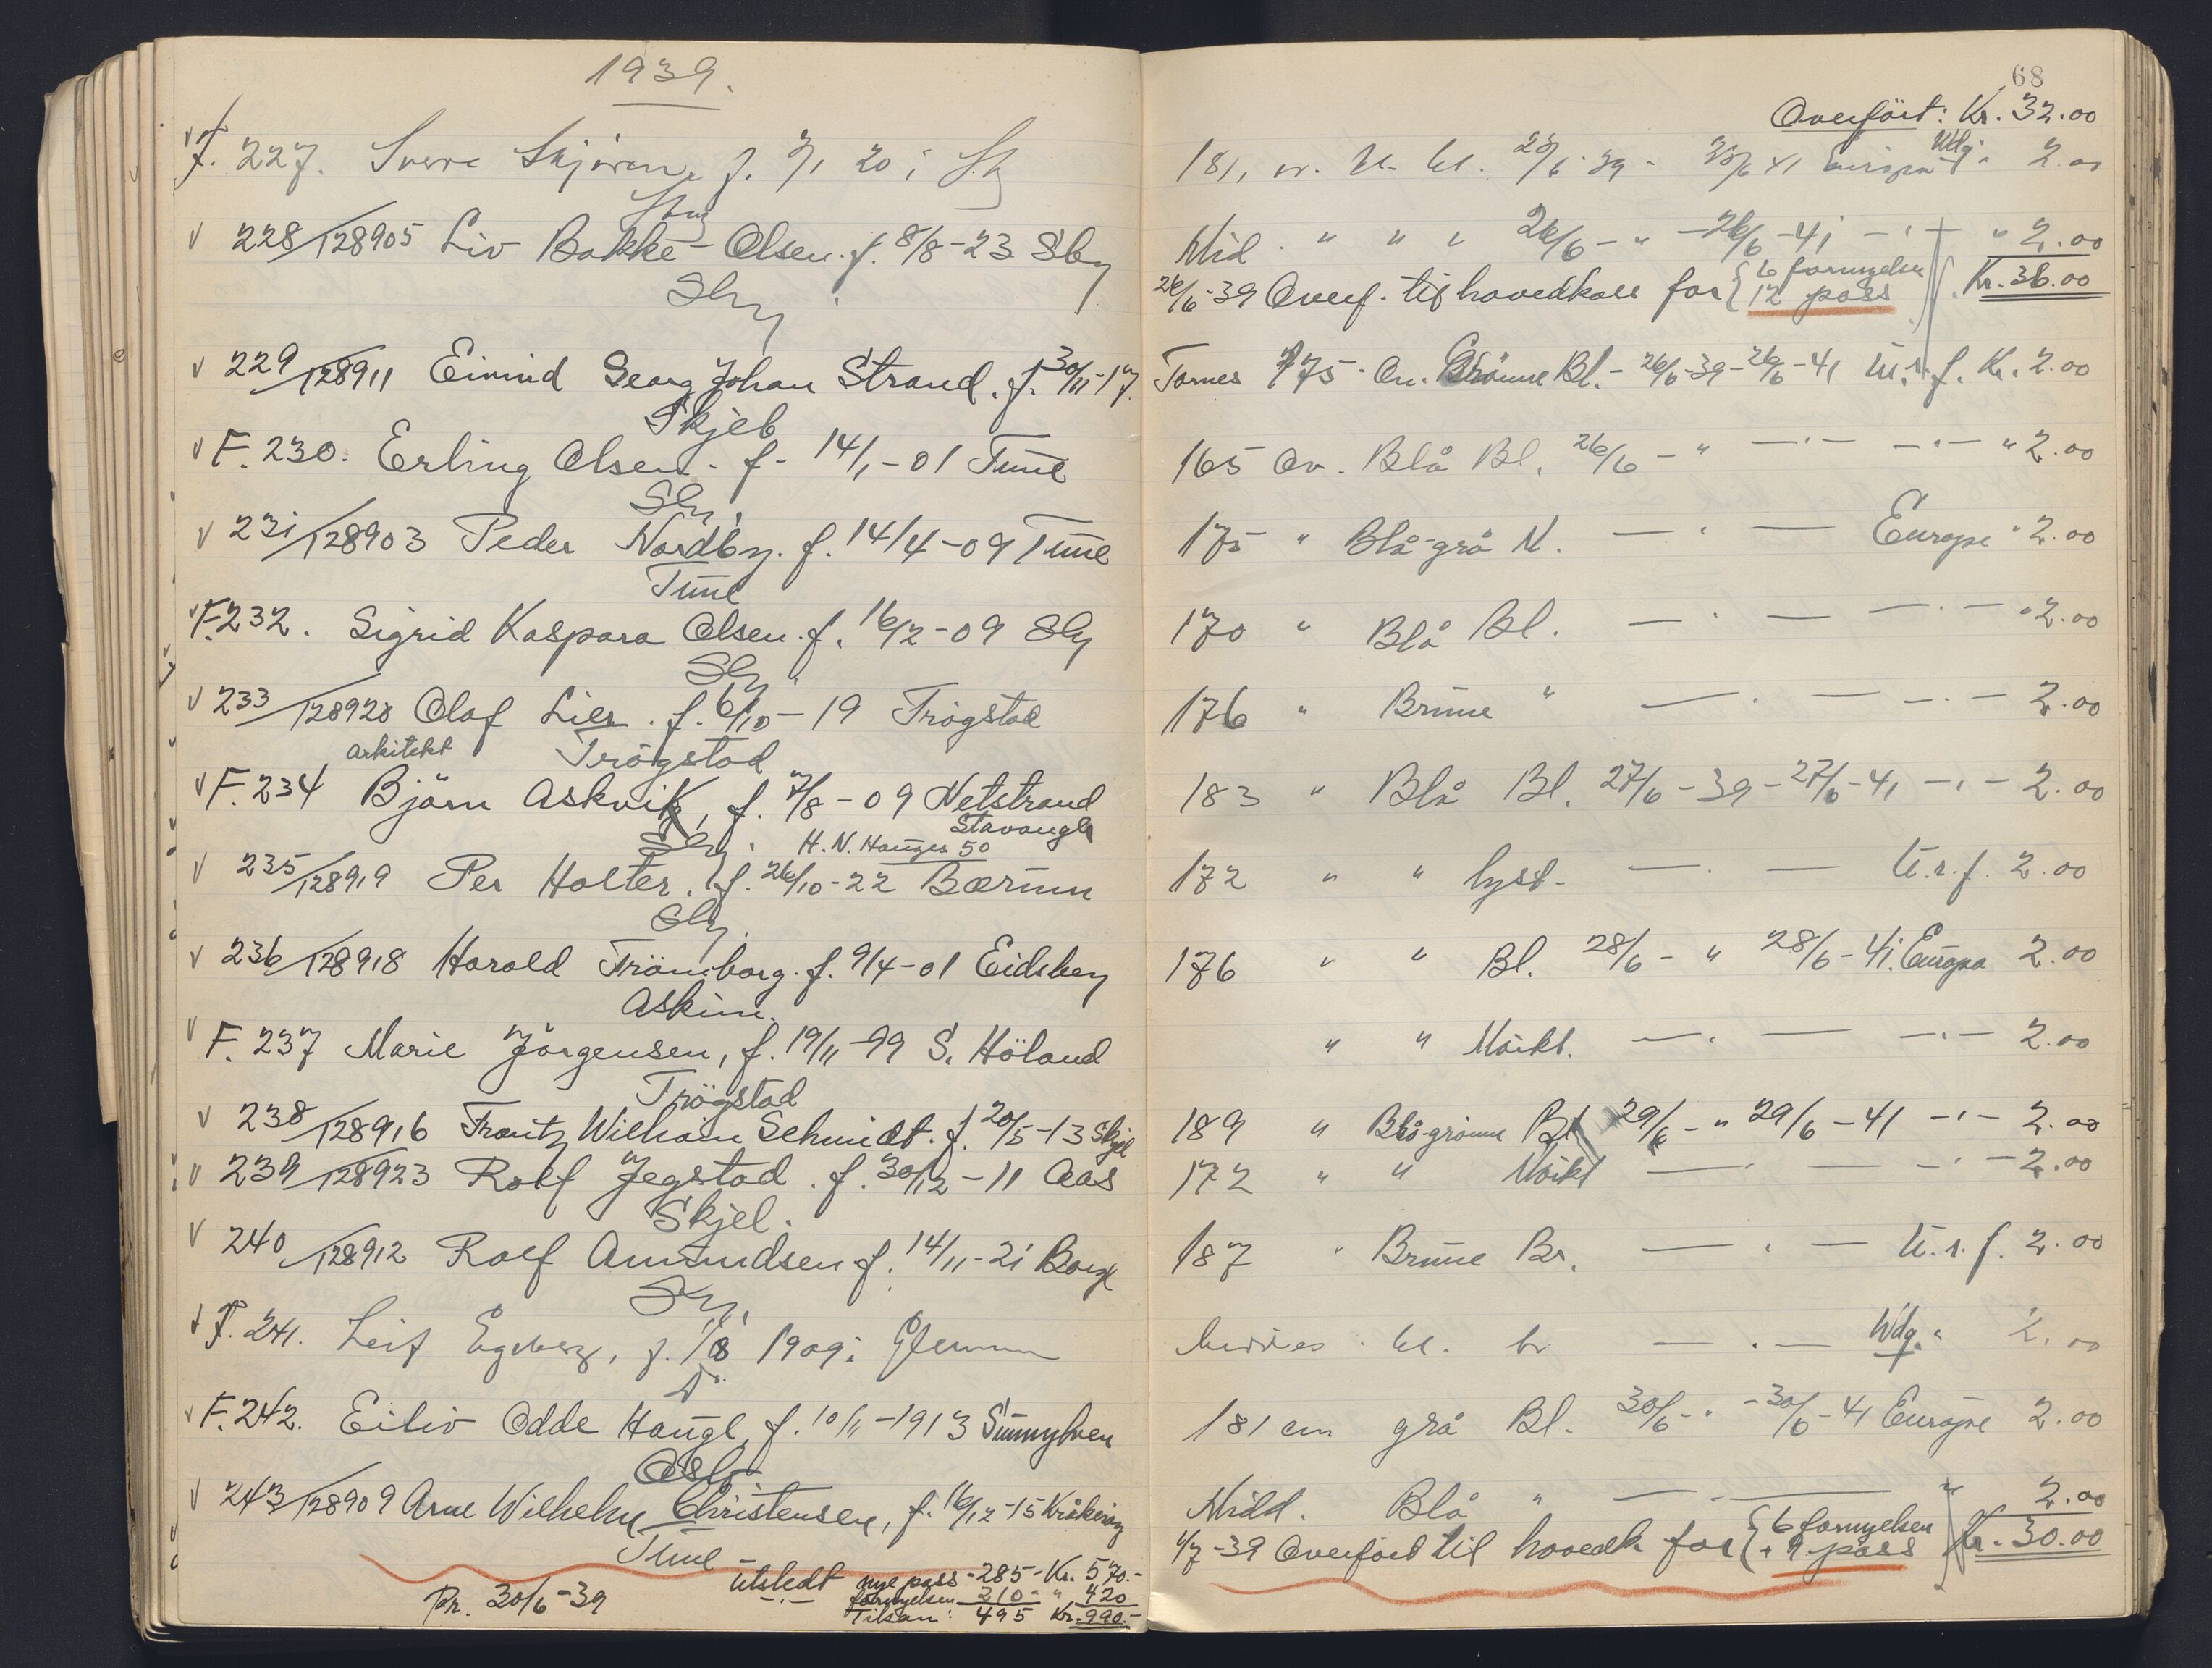 1939.
F. 227. Sverre Skjøren, f. 3/1 20 i Sbg
Sbg
228/128905 Liv Bakke-Olsen. f. 8/8-23 Sbg
Sbg
229/128911 Eivind Georg Johan Strand. f. 30/11-17.
Skjeb
F. 230. Erling Olsen. f. 14/1-01 Tune
Sbg.
231/128903 Peder Nordby. f. 14/4-09 Tune
Tune
F. 232. Sigrid Kaspara Olsen. f. 16/2-09 Sbg
Sbg.
233/128920 Olaf Lier. f. 6/10-19 Trøgstad
arkitekt Trögstad
F. 234 Björn Askvik, f. 7/8-09 Netstrand
Stavanger
Sbg. H. N. Hauges 50
235/128919 Per Holter. f. 26/10-22 Bærum
Sbg.
236/128918 Harald Trömborg. f. 9/4-01 Eidsberg
Askim.
F. 237 Marie Jörgensen, f. 19/11-99 S. Höland
Trögstad
238/128916 Frantz Wilhelm Schmidt. f. 20/5-13 Skjeb
239/128923 Rolf Jegstad. f. 30/12-11 Aas
Skjeb.
240/128912 Rolf Amundsen f. 14/11-21 Borge
Sbg.
F. 241. Leif Engberg, f. 1/8 1909 i Glemmen
F. 242. Eiliv Odde Hauge, f. 10/11-1913 Sunnylven
Oslo
243/128909 Arne Wilhelm Christensen, f. 16/12-15 Kråkerøy
Tune
Pr. 30/6-39 utstedt nye pass - 285 - Kr. 570.-
fornyelsen 210 - " 420
Tilsam: 495 Kr. 990.-
68
Overført: Kr. 32.00
181, ov. bl. bl. 26/6 39 - 26/6 41 Europa Utlg. 2.00
Mid. " " " 26/6 - " - 26/6 - 41 - " - " 2.00
26/6-39 Overf. til hovedkass for { 6 fornyelser 12 pass } Kr. 36.00
Tornes 175 - Ov. Grønne Bl. - 26/6-39-26/6-41 U.r.f. Kr. 2.00
165 Ov. Blå Bl. 26/6 - " — " — — " — " 2.00
175 " Blå-grå M. — " — Europa " 2.00
170 " Blå Bl. — " — — " — " 2.00
176 " Brune " — " — — " — 2.00
183 " Blå Bl. 27/6-39-27/6-41 - " - 2.00
172 " " lyst. — " — U.r.f. 2.00
176 " " Bl. 28/6 - " 28/6-41. Europa 2.00
" " Mörkt. — " — — " — 2.00
189 " Blå-grønne Bl 29/6 - " 29/6-41 - " - 2.00
172 " " Mörkt — " — — " — 2.00
187 " Brune Br. — " — U.r.f. 2.00
bl. br — " — Utlg. " 2.00
181 cm grå Bl. 30/6 - " - 30/6-41 Europa 2.00
Midd. Blå " — " — 2.00
1/7-39 Overført til hovedk for { 6 fornyelser + 9 pass } Kr. 30.00